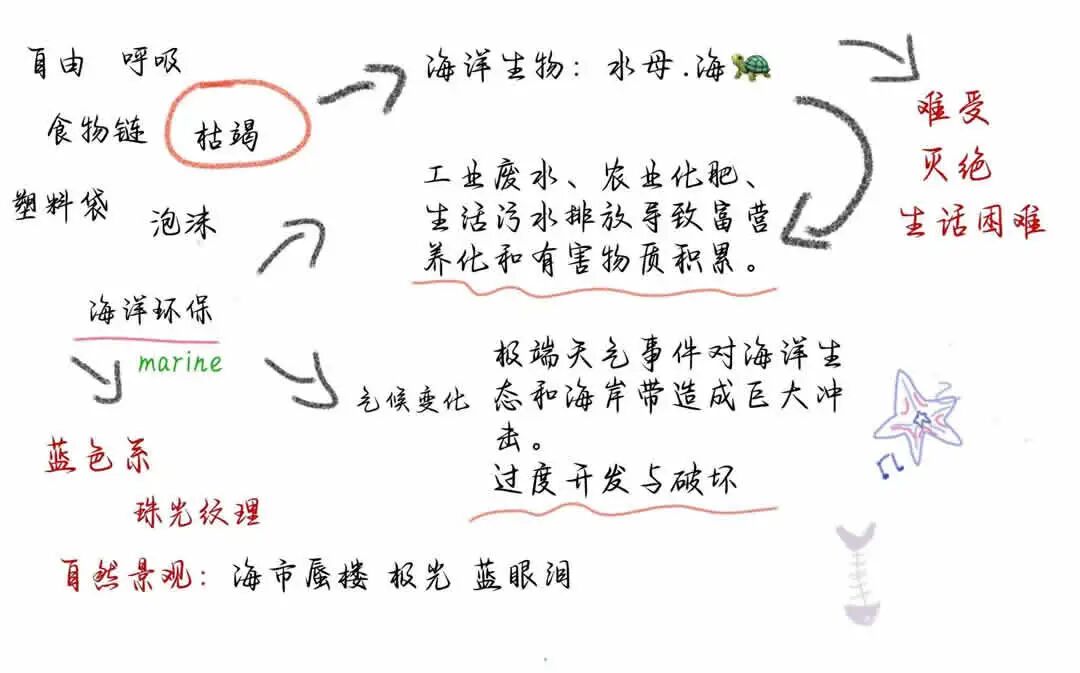 自由 呼吸
食物链 枯竭
塑料袋 泡沫
海洋环保
marine
海洋生物：水母.海🐢
难受
灭绝
生话困难
工业废水、农业化肥、
生活污水排放导致富营
养化和有害物质积累。
气候变化
极端天气事件对海洋生
态和海岸带造成巨大冲
击。
过度开发与破坏
蓝色系
珠光纹理
自然景观：海市蜃楼 极光 蓝眼泪